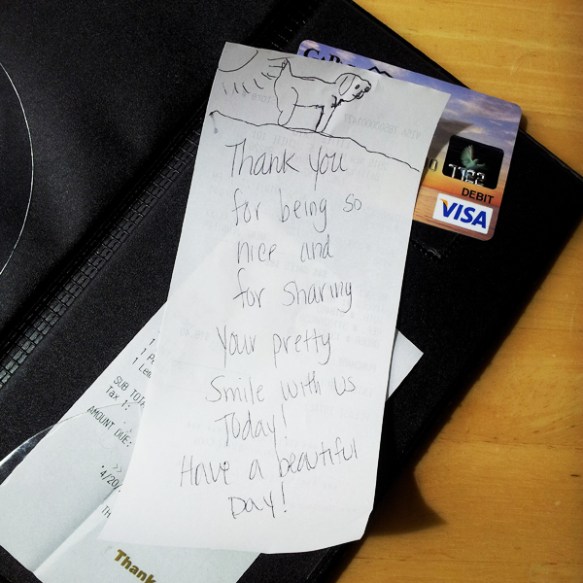 Thank you
for being so
nice and
for sharing
Your pretty
Smile with us
Today!
Have a beautiful
Day!
DEBIT
VISA
1
1
1
SUB
Tax 1:
AMOUNT DUE:
Thank